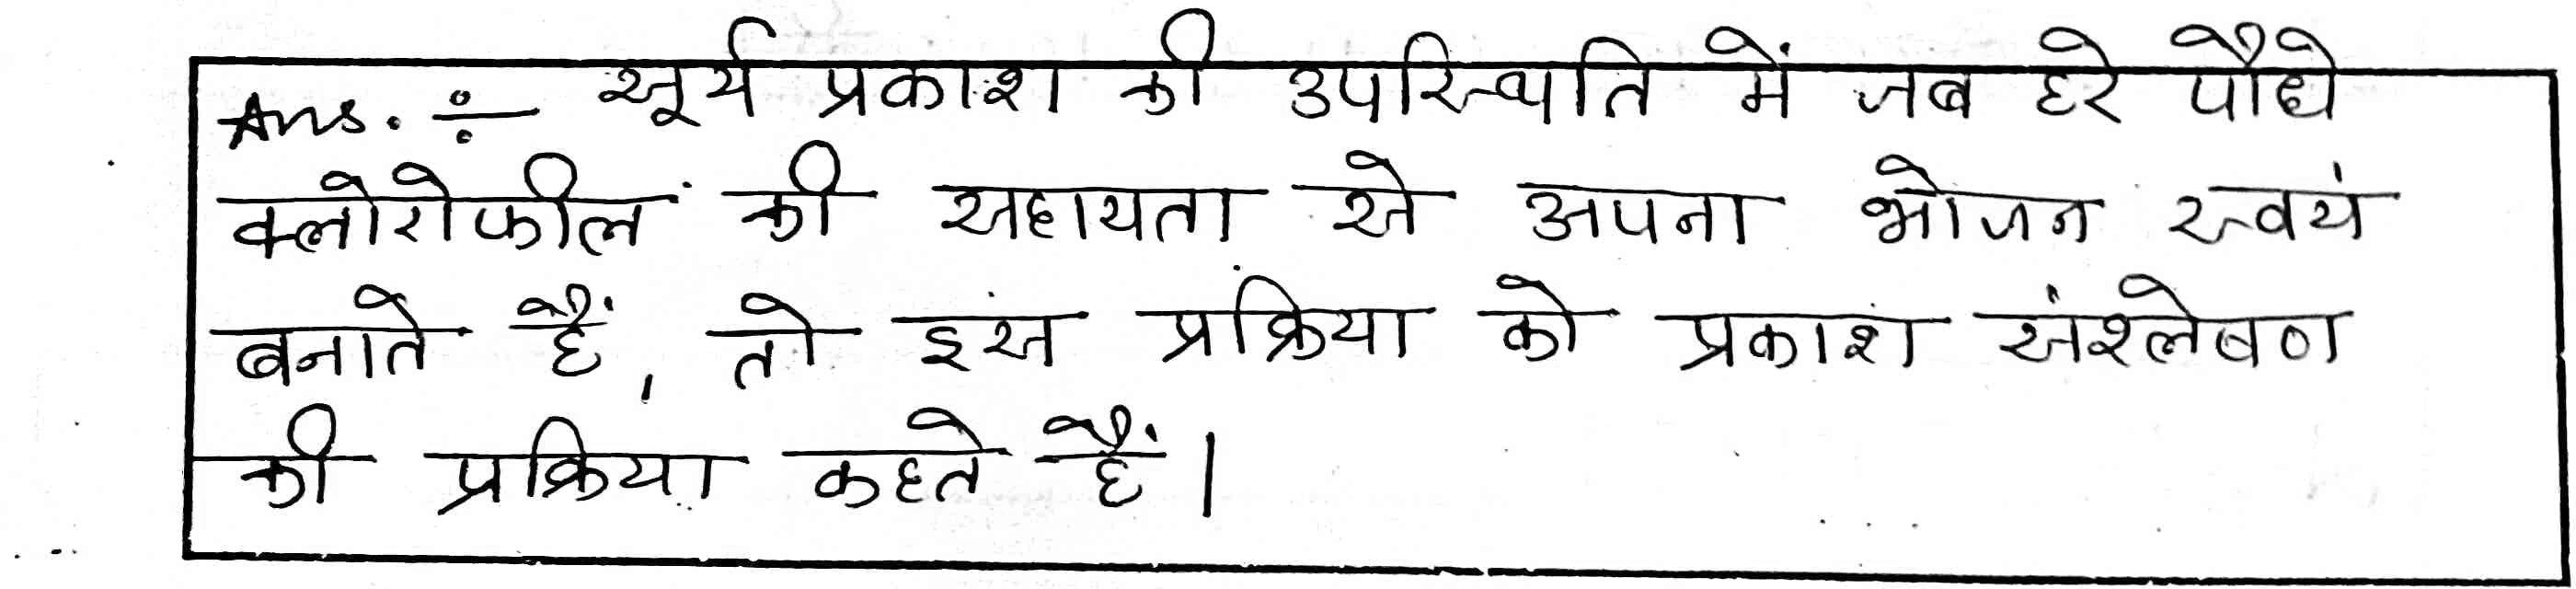 Ans. ÷ सूर्य प्रकाश की उपस्थिति में जब हरे पौधे
क्लोरोफील की सहायता से अपना भोजन स्वयं
बनाते हैं, तो इस प्रक्रिया को प्रकाश संश्लेषण
की प्रक्रिया कहते हैं।